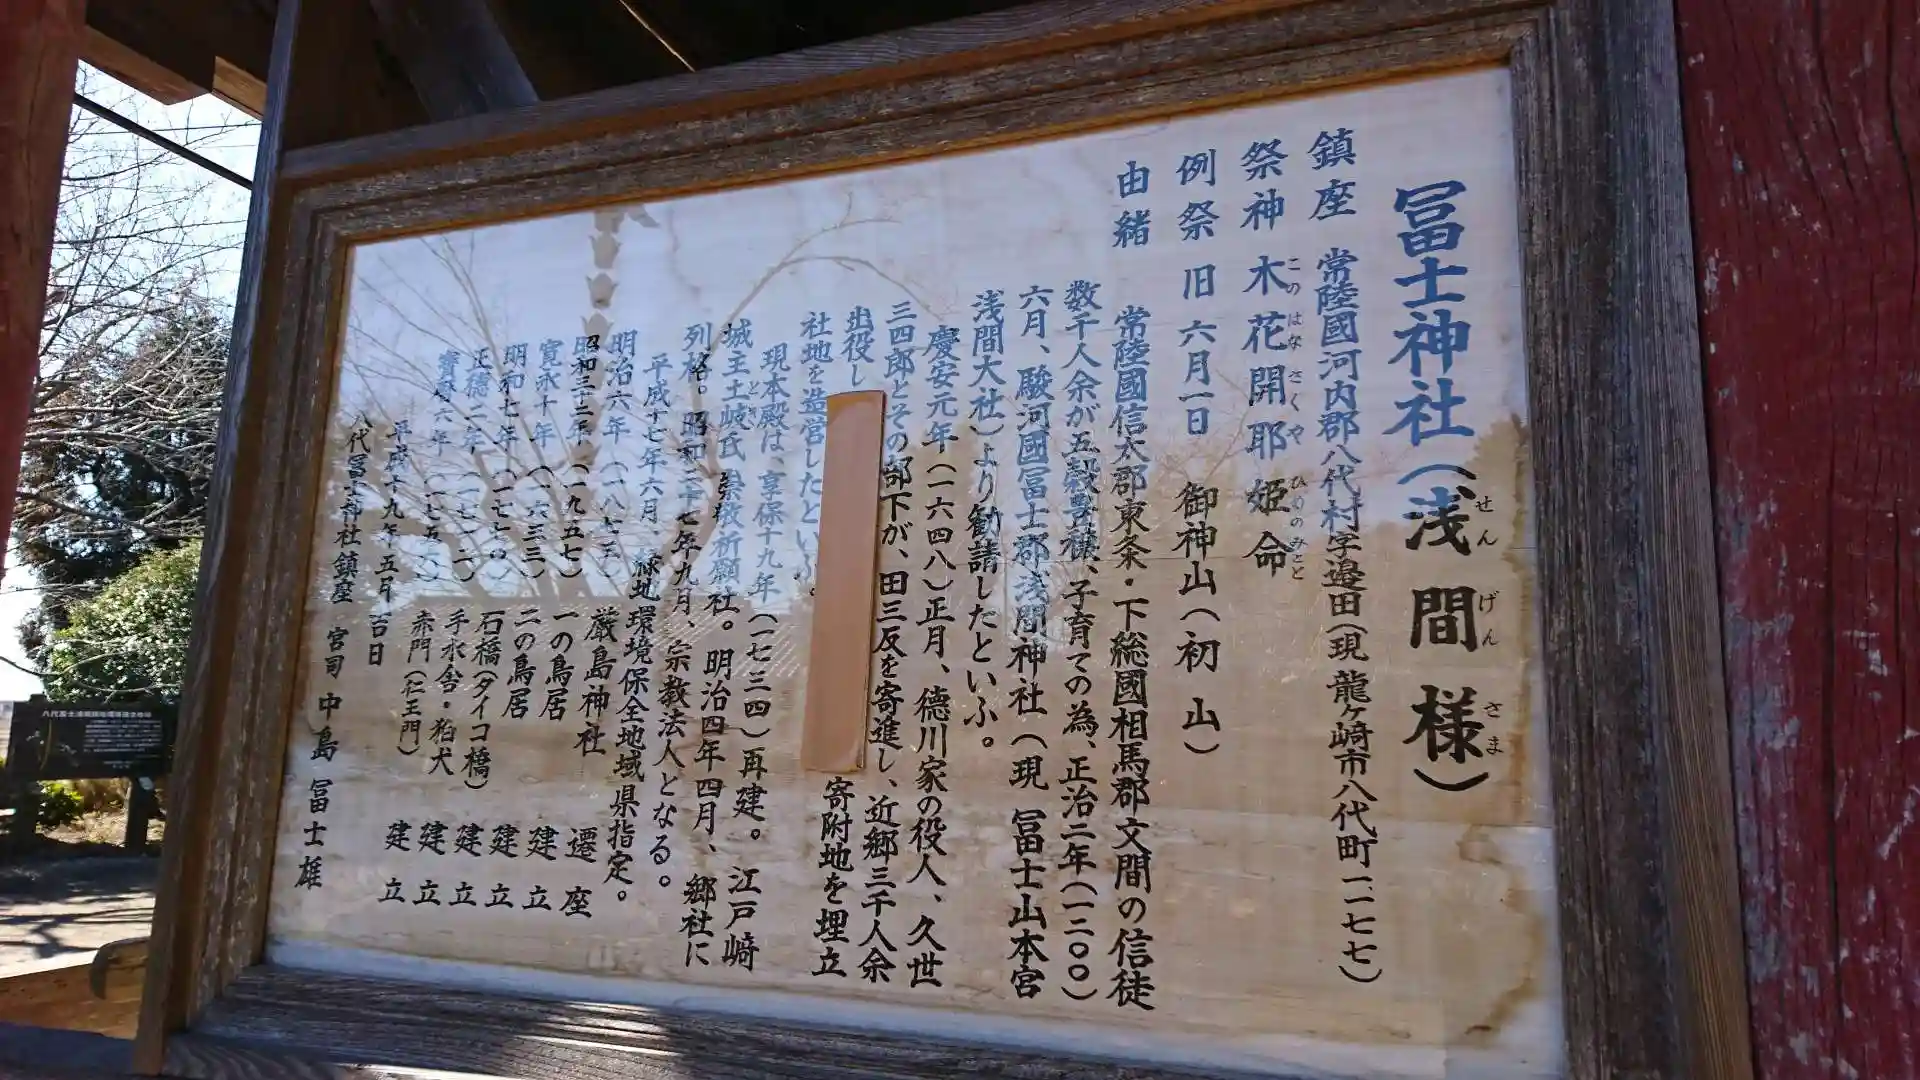 冨士神社(浅間様)
せんげんさま
鎮座 常陸國河内郡八代村字邉田(現 龍ヶ崎市八代町一二七七)
祭神 木花開耶姫命
このはなさくやひめのみこと
例祭 旧六月一日 御神山(初山)
由緒
常陸國信太郡東条・下総國相馬郡文間の信徒
数千人余が五穀豊穣、子育ての為、正治二年(一二〇〇)
六月、駿河國冨士郡浅間神社(現 冨士山本宮
浅間大社)より勧請したといふ。
慶安元年(一六四八)正月、德川家の役人、久世
三四郎とその部下が、田三反を寄進し、近郷三千人余
出役し 寄附地を埋立
社地を造営したといふ。
現本殿は、享保十九年(一七三四)再建。江戸崎
城主土岐氏 崇敬祈願社。明治四年四月、郷社に
とき
列格。昭和二十七年九月、宗教法人となる。
平成十七年六月、緑地環境保全地域県指定。
明治六年(一八七三) 厳島神社 遷座
昭和三十二年(一九五七) 一の鳥居 建立
寛永十年(一六三三) 二の鳥居 建立
明和七年(一七七〇) 石橋(タイコ橋) 建立
正德二年(一七一二) 手水舎・狛犬 建立
寶暦六年 赤門(仁王門) 建立
平成十九年五月吉日
八代冨士神社鎮座 宮司 中島 冨士雄